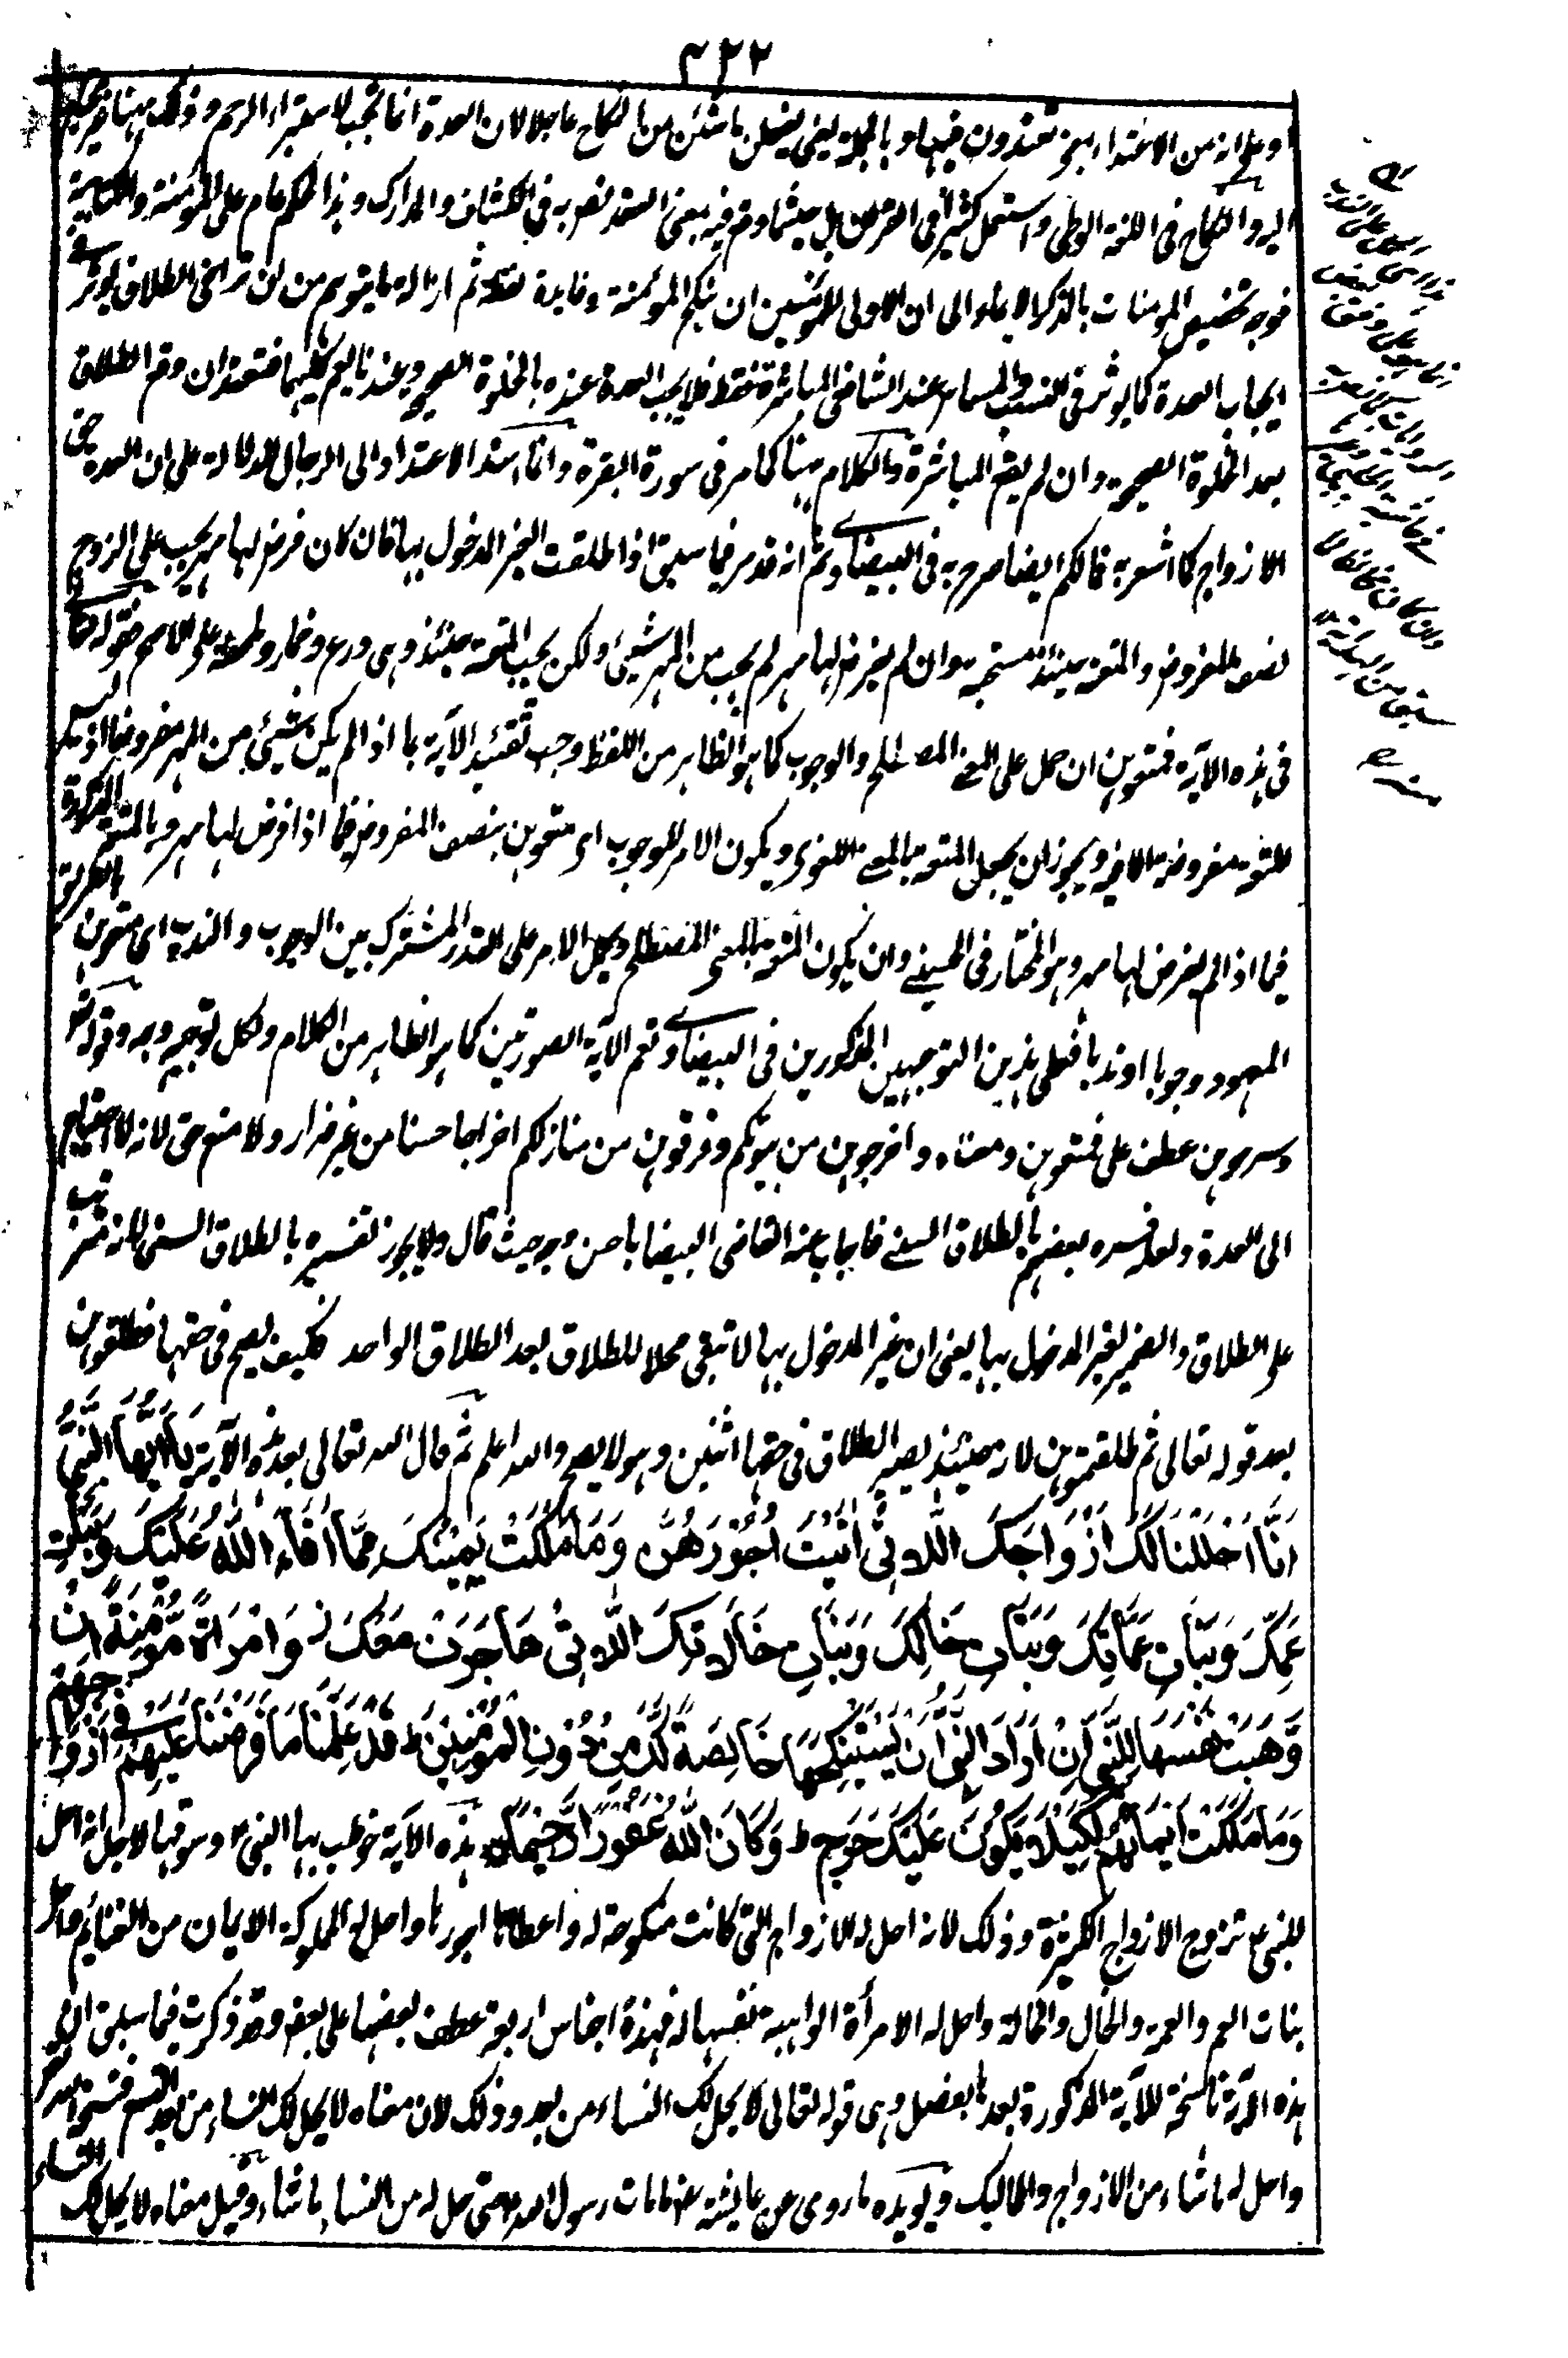 ٤٢٢
او على انه من الاعتداء بمعنى تعتدون فيها وبالجملة يعنى يفعلن ما شئن من النكاح عاجلا لان العدة انما تجب لاستبراء الرحم وذلك ههنا غير محتاج
اليه والنكاح فى اللغة الوطى واستعمل كثيرا فى القرآن بل حيثما وقع فيه بمعنى العقد نص به فى الكشاف والمدارك وهذا الحكم عام على المؤمنة والكتابية
فوجه تخصيص المومنات بالذكر الايماء الى ان الاولى للمؤمنين ان ينكح المؤمنة وفايدة لفظ ثم ازالة ما يتوهم من ان تراخى الطلاق يؤثر فى
ايجاب العدة كما يوثر فى النسب والمساس عند الشافعى المباشرة فقط فلا يجب العدة عنده بالخلوة الصحيحة وعندنا يعم كليهما فتعتد ان وقع الطلاق
بعد الخلوة الصحيحة وان لم يقع المباشرة والكلام ههنا كما مر فى سورة البقرة وانما اسند الاعتداد الى الرجال للدلالة على ان العدة حق
الازواج كما اشعر به فمالكم ايضا صرح به فى البيضاوى ثم انه قد مر فيما سبق اذا طلقت الغير المدخول بها فان كان فرض لها مهر يجب على الزوج
نصف المفروض والمتعة حينئذ مستحبة وان لم يفرض لها مهر لم يجب من المهر شيئ ولكن يجب المتعة حينئذ وهى درع وخمار وملحفة على الاصح فقوله تعالى
فى هذه الآية فمتعوهن ان حمل على المعنى المصطلح والوجوب كما هو الظاهر من اللفظ وجب تقئيد الآية بما اذا لم يكن شيئ من المهر مفروضا اذ ليس
للمتعة مفروضة الا فيه ويجوز ان يجعل المتعة بالمعنى اللغوى ويكون الامر للوجوب اى متعوهن بنصف المفروض فيما اذا فرض لها مهر وبالمتعة المعهودة
فيما اذا لم يفرض لها مهر وهو المختار فى الحسينى وان يكون المتعة بالمعنى المصطلح ويحمل الامر على القدر المشترك بين الوجوب والندب اى متعوهن بالطريق
المعهود وجوبا او ندبا فعلى هذين التوجيهين المذكورين فى البيضاوى تعم الآية الصورتين كما هو الظاهر من الكلام ولكل توجيه وجه وقوله تعالى
وسرحوهن عطف على فمتعوهن ومعناه واخرجوهن من بيوتكم وفرقوهن من منازلكم اخراجا حسنا من غير ضرار ولا منع حق لانه لا احتياج
الى العدة ولعله فسره بعضهم بالطلاق السنى فاجاب عنه القاضى البيضا باحسن وجه حيث قال ولا يجوز تفسيره بالطلاق السنى لانه مرتب
على الطلاق والضمير لغير المدخول بها يعنى ان غير المدخول بها لا تبقى محلا للطلاق بعد الطلاق الواحد فكيف يصح فى حقها فطلقوهن
بعد قوله تعالى ثم طلقتموهن لانه حينئذ يصير الطلاق فى حقها اثنين وهو لا يصح والله اعلم ثم قال الله تعالى بعد هذه الآية يَا اَيُّهَا النَّبِىُّ
اِنَّا اَحْلَلْنَا لَكَ اَزْوَاجَكَ اللَّاتِىْ اٰتَيْتَ اُجُوْرَهُنَّ وَمَا مَلَكَتْ يَمِيْنُكَ مِمَّا اَفَاءَ اللّٰهُ عَلَيْكَ وَبَنَاتِ
عَمِّكَ وَبَنَاتِ عَمَّاتِكَ وَبَنَاتِ خَالِكَ وَبَنَاتِ خَالَاتِكَ اللَّاتِىْ هَاجَرْنَ مَعَكَ وَامْرَاَةً مُّؤْمِنَةً اِنْ
وَّهَبَتْ نَفْسَهَا لِلنَّبِىِّ اِنْ اَرَادَ النَّبِىُّ اَنْ يَّسْتَنْكِحَهَا خَالِصَةً لَّكَ مِنْ دُوْنِ الْمُؤْمِنِيْنَ ط قَدْ عَلِمْنَا مَا فَرَضْنَا عَلَيْهِمْ فِىْ اَزْوَاجِهِمْ
وَمَا مَلَكَتْ اَيْمَانُهُمْ لِكَيْلَا يَكُوْنَ عَلَيْكَ حَرَجٌ ط وَكَانَ اللّٰهُ غَفُوْرًا رَّحِيْمًا هذه الآية خوطب بها النبى ع وسوقها لاجل انه احل
للنبى ع تزوج الازواج الكثيرة وذلك لانه احل له الازواج التى كانت منكوحة له واعطاها اجورها واحل له المملوكة الايمان من الغنائم واحل له
بنات العم والعمة والخال والخالة واحل له الامرأة الواهبة نفسها له فهذه اجناس اربعة عطف بعضها على بعض وقد ذكرت فيما سبق ان
هذه الآية ناسخة للآية المذكورة بعدها بفصل وهى قوله تعالى لا يحل لك النساء من بعد وذلك لان معناه لا يحل لك النساء من بعد التسع فنسخ
واحل له ما شاء من الازواج والممالك ويويده ما روى عن عايشة رض ما مات رسول الله ص حتى حل له من النساء ما شاء وقيل معناه لا يحل لك النساء